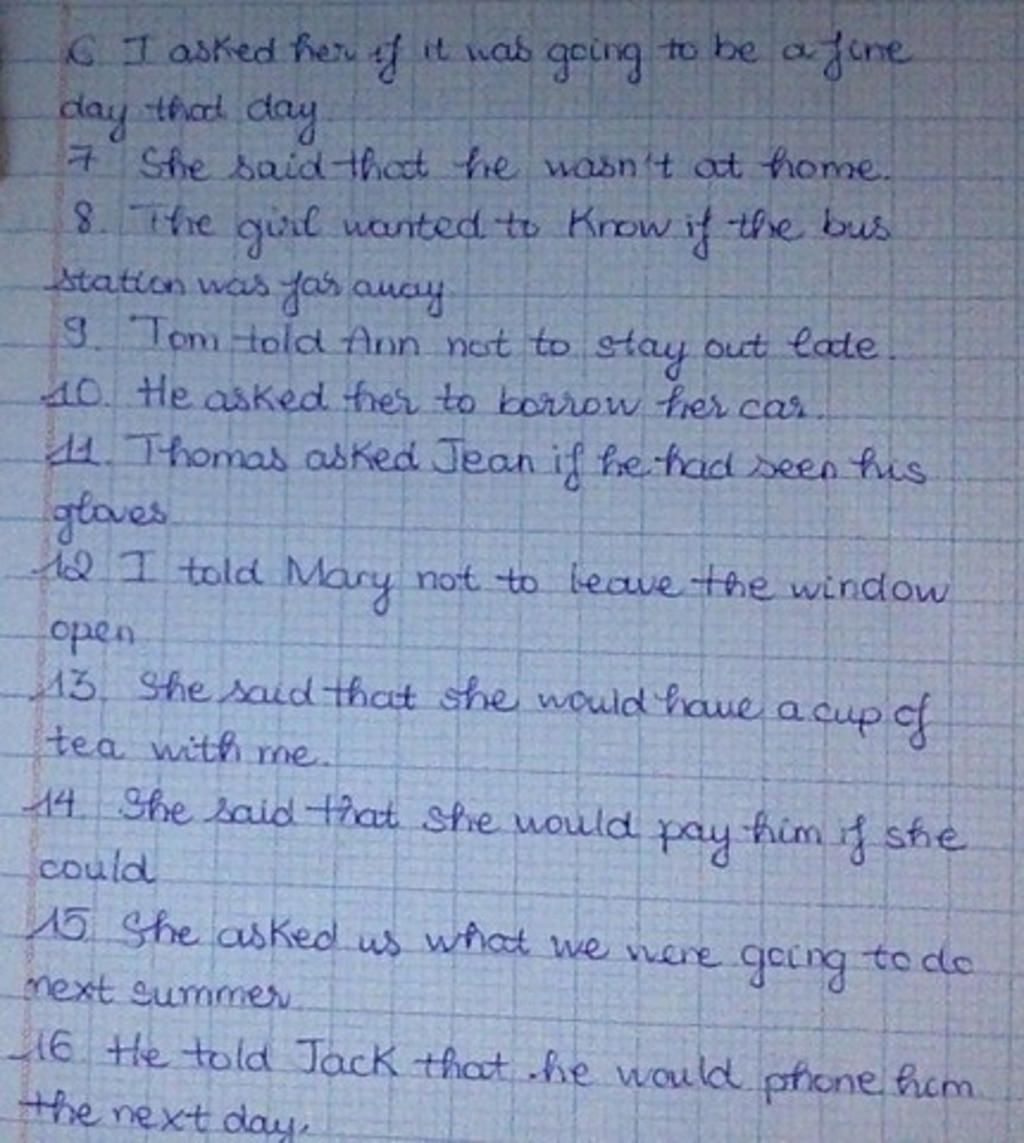 6 I asked her if it was going to be a fine
day that day
7 She said that he wasn't at home.
8. The girl wanted to know if the bus
station was far away
9. Tom told Ann not to stay out late.
10. He asked her to borrow her car.
11. Thomas asked Jean if he had seen his
gloves
12 I told Mary not to leave the window
open
13. She said that she would have a cup of
tea with me.
14. She said that she would pay him if she
could
15 She asked us what we were going to do
next summer
16 He told Jack that he would phone him
the next day.